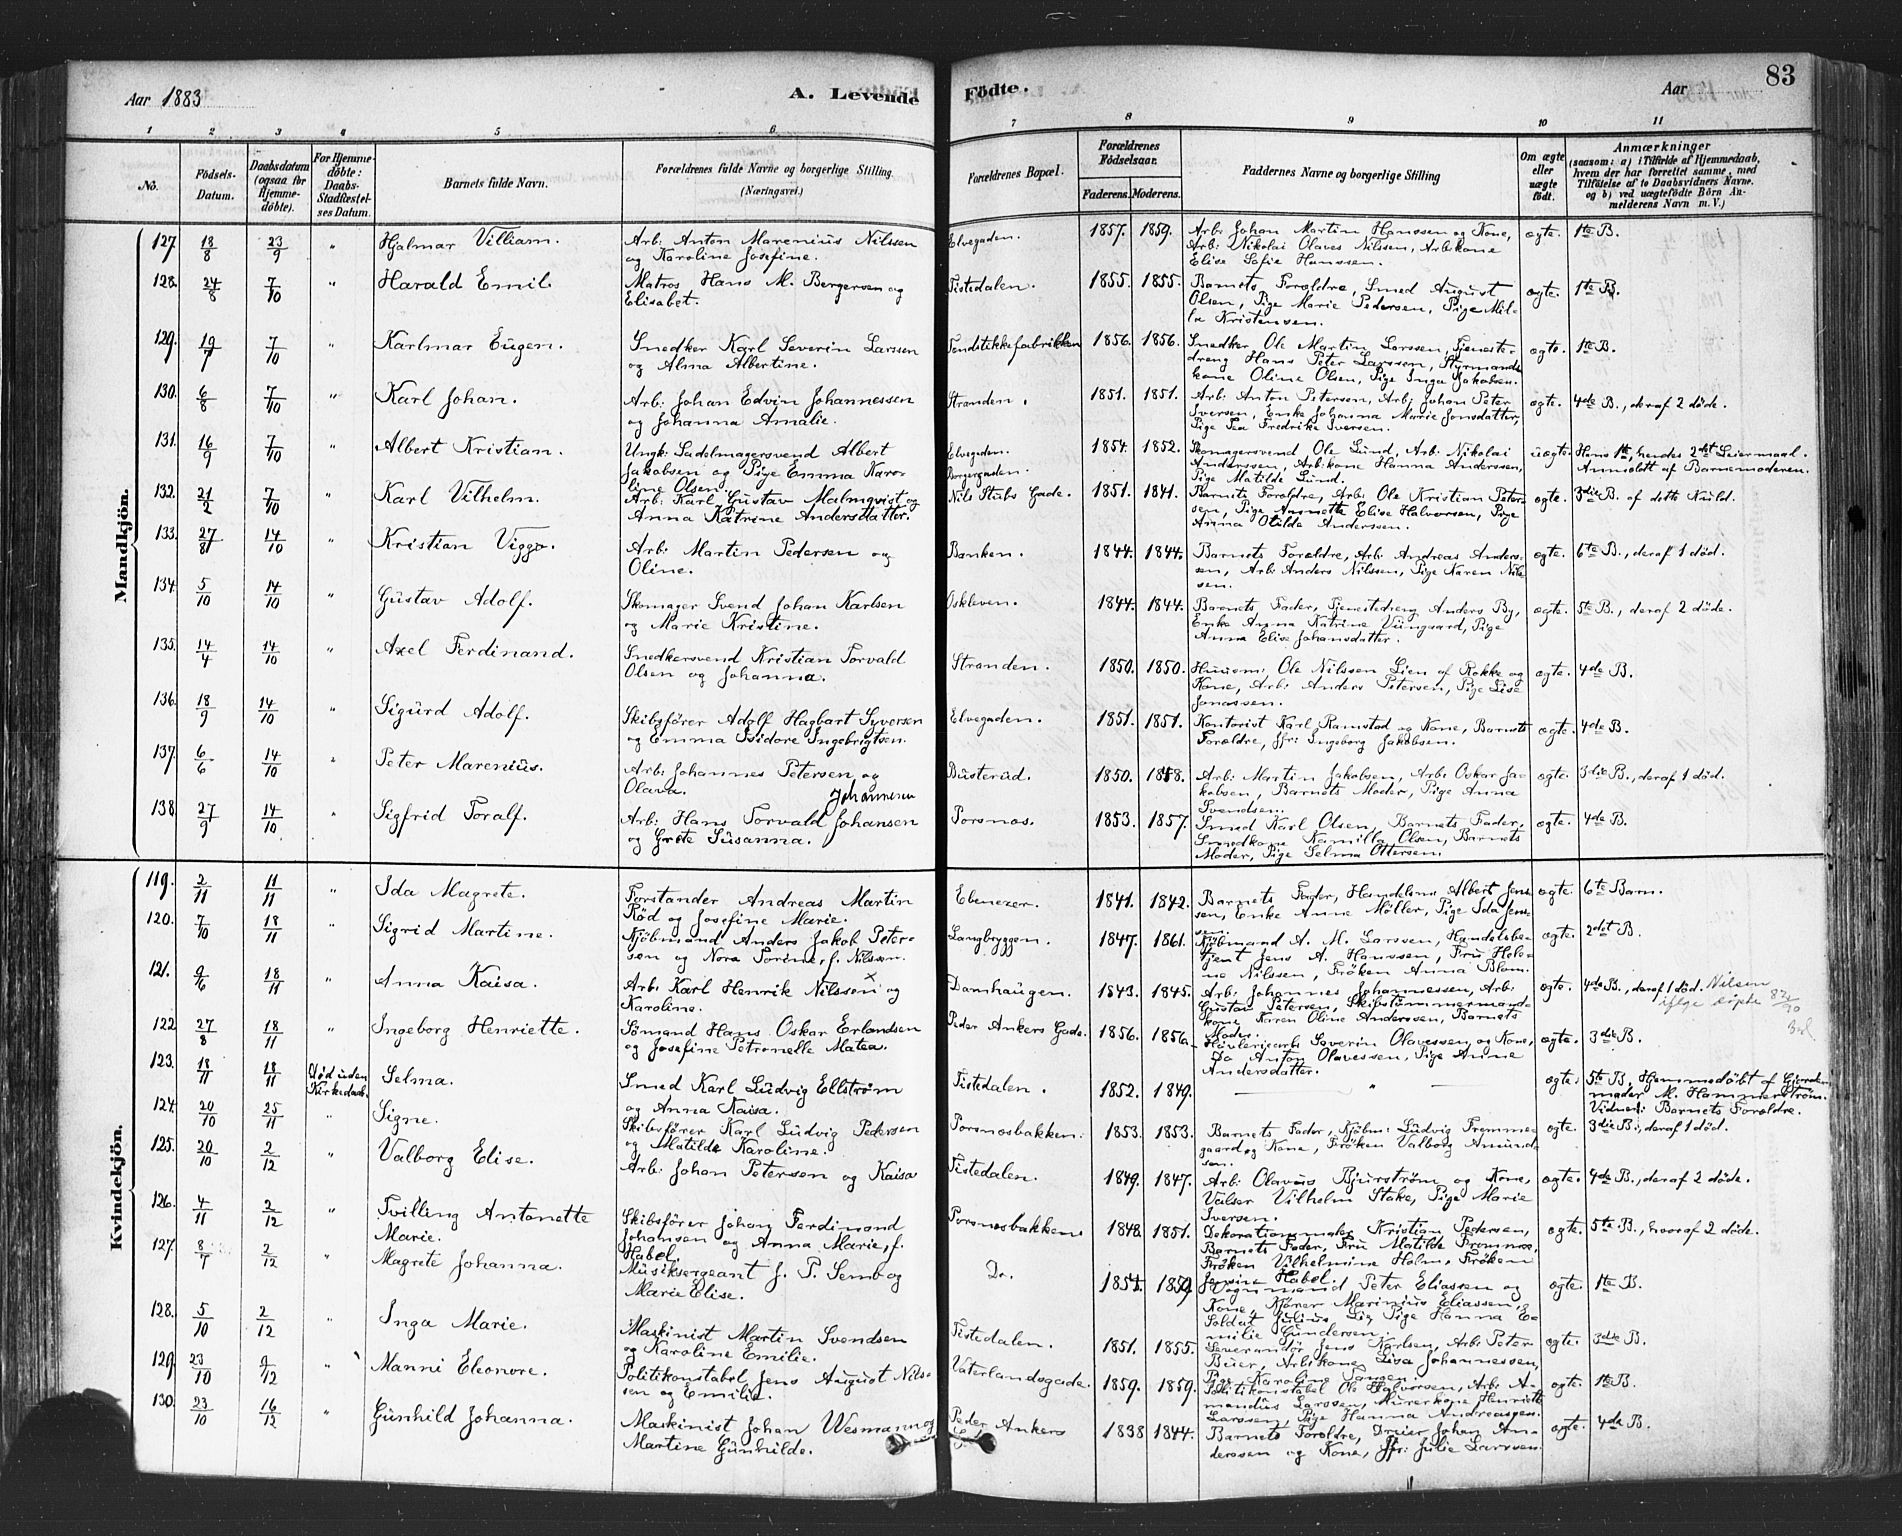 Aar 1883
A. Levende Födte.
Aar
83
1 2 3 4 5 6 7 8 9 10 11
No.
Födsels-Datum.
Daabsdatum (ogsaa for Hjemme-döbte).
For Hjemme-döbte: Daabs-Stadfæstel-ses Datum.
Barnets fulde Navn.
Forældrenes fulde Navne og borgerlige Stilling (Næringsvei.)
Forældrenes Bopæl.
Forældrenes Födselsaar. Faderens. Moderens.
Faddernes Navne og borgerlige Stilling
Om ægte eller uægte födt.
Anmærkninger (saasom: a) i Tilfælde af Hjemmedaab, hvem der har forrettet samme, med Tilföielse af to Daabsvidners Navne. og b) ved uægtefödte Börn An-melderens Navn m. V.)
Mandkjön.
127. 18/8 23/9 " Hjalmar Villiam. Arb: Anton Marenius Nilssen og Karoline Josefine. Elvegaden. 1857. 1859. Arb: Johan Martin Hanssen og Kone, Arb: Nikolai Olaves Nilssen, Arb:kone Elise Sofie Hanssen. ægte. 1te B.
128. 24/8 7/10 " Harald Emil Matros Hans M. Bergersen og Elisabet. Tistedalen. 1855. 1855. Barnets Forældre, Smed August Olsen, Pige Marie Pedersen, Pige Mil-la Kristensen. ægte. 1te B.
129. 19/7 7/10 " Karlmar Eugen. Snedker Karl Severin Larssen og Alma Albertine. Tendstikkefabrikken 1856. 1856. Snedker Ole Martin Larssen, Tjeneste-dreng Hans Peter Larssen, Styrmands-kone Oline Olsen, Pige Inga Jakobsen. ægte. 1te B.
130. 6/8 7/10 " Karl Johan. Arb: Johan Edvin Johannessen og Johanna Amalie. Stranden. 1851. 1851. Arb: Anton Petersen, Arb: Johan Peter Iversen, Enke Johanna Marie Jonsdatter, Pige Tea Fredrike Iversen. ægte. 4de B., deraf 2 döde.
131. 16/9 7/10 " Albert Kristian. Ungk: Sadelmagersvend Albert Jakobsen og Pige Emma Karo-line Olsen. Elvegaden. Borgergaden. 1854. 1852. Skomagersvend Ole Lund, Arb: Nikolai Anderssen, Arb:kone Hanna Anderssen, Pige Matilde Lund. uægte. Hans 1te, hendes 2det Leiermaal. Anmeldt af Barnemoderen.
132. 21/2 7/10 " Karl Vilhelm. Arb: Karl Gustav Malmqvist og Anna Katrine Andersdatter. Nils Stubs Gade. 1851. 1841. Barnets Forældre, Arb: Ole Kristian Peter-sen, Pige Annette Elise Halvorsen, Pige Anna Otilde Andersen. ægte. 3die B. af dette Kuld.
133. 27/8 14/10 " Kristian Viggo. Arb: Martin Pedersen og Oline. Banken. 1844. 1844. Barnets Forældre, Arb: Andreas Anders-sen, Arb: Anders Nilssen, Pige Karen Nils-sen. ægte. 6te B., deraf 1 död.
134. 5/10 14/10 " Gustav Adolf. Skomager Svend Johan Karlsen og Marie Kristine. Oskleven. 1844. 1844. Barnets Fader, Tjenestedreng Anders By, Enke Anna Katrine Vungaard, Pige Anna Elise Johansdatter. ægte. 5te B., deraf 2 döde.
135. 14/4 14/10 " Axel Ferdinand. Snedkersvend Kristian Torvald Olsen og Johanna. Stranden. 1850. 1850. Huusm: Ole Nilssen Lien af Rokke og Kone, Arb: Anders Petersen, Pige Lise Jonassen. ægte. 4de B.
136. 18/9 14/10 " Sigurd Adolf. Skibsförer Adolf Hagbart Syversen og Emma Isidore Ingebrigtsen. Elvegaden. 1851. 1851. Kontorist Karl Ramstad og Kone, Barnets Forældre, Jfr: Ingeborg Jakobsen. ægte. 4de B.
137. 6/6 14/10 " Peter Marenius. Arb: Johannes Petersen og Olava. Busterud. 1850. 1858. Arb: Martin Jakobsen, Arb: Oskar Ja-kobsen, Barnets Moder, Pige Anna Svendsen. ægte. 3die B., deraf 1 död.
138. 27/9 14/10 " Sigfrid Toralf. Arb: Hans Torvald Johansen Johannesen og Grete Susanna. Porsnæs. 1853. 1857. Smed Karl Olsen, Barnets Fader, Smedkone Kamilla Olsen, Barnets Moder, Pige Selma Ottersen. ægte. 4de B.
Kvindekjön.
119. 2/11 11/11 " Ida Magrete. Forstander Andreas Martin Röd og Josefine Marie. Ebenezer. 1841. 1842. Barnets Fader, Handelsm: Albert Jens-sen, Enke Anne Möller, Pige Ida Jens-sen. ægte. 6te Barn.
120. 7/10 18/11 " Sigrid Martine. Kjöbmand Anders Jakob Peter-sen og Nora Torine, f. Nilssen. Langbryggen. 1847. 1861. Kjöbmand A. M. Larssen, Handelsbe-tjent Jens A. Hanssen, Fru Hele-ne Nilssen, Fröken Anna Blom. ægte. 2det B.
121. 9/6 18/11 " Anna Kaisa. Arb: Karl Henrik Nilssen x og Karoline. Damhaugen. 1843. 1845. Arb: Johannes Johannessen, Arb: Gustav Petersen, Skibstömmermands-kone Karen Oline Anderssen, Barnets Moder. ægte. 4de B., deraf 1 död. Nilsen
122. 27/8 18/11 " Ingeborg Henriette. Sömand Hans Oskar Erlandsen og Josefine Petronelle Matea. Peder Ankers Gade. 1856. 1856. Hövleriearb: Severin Olavessen og Kone, Do Anton Olavessen, Pige Anne Andersdatter. ægte. 3die B.
123. 18/11 18/11 Död uden Kirkedaab. Selma. Smed Karl Ludvig Ellström og Anna Kaisa. Tistedalen. 1852. 1849. " ægte. 5te B. Hjemmedöbt af Gjorde-moder M. Hammerström. Vidner: Barnets Forældre.
124. 20/10 25/11 " Signe. Skibsförer Karl Ludvig Pedersen og Matilde Karoline. Porsnæsbakken. 1853. 1853. Barnets Fader, Kjöbm: Ludvig Fremme-gaard og Kone, Fröken Valborg Amund-sen. ægte. 3die B., deraf 1 död.
125. 20/10 2/12 " Valborg Elise. Arb: Johan Petersen og Kaisa Tistedalen. 1849. 1847. Arb: Olavus Bjurström og Kone, Valser Vilhelm Stake, Pige Marie Iversen. ægte. 4de B., deraf 2 döde.
126. 4/11 2/12 " Tvilling Antonette Marie. Skibsförer Johan Ferdinand Johansen og Anna Marie, f. Habel. Porsnæsbakken 1848. 1851. Dekorationsmaler Kristian Pedersen, Barnets Fader, Fru Matilde Fromme, Fröken Vilhelmine Holm, Fröken Jensine Habel. ægte. 5te B., hvoraf 2 döde.
127. 8/ 2/12 " Magrete Johanna. Musiksergeant J. P. Semb og Marie Elise. Do. 1854. 1859 Vognmand Peter Eliassen og Kone, Kjörer Marinius Eliassen, Soldat Julius Lie, Pige Hanna E-milie Gundersen. ægte. 1te B.
128. 5/10 2/12 " Inga Marie. Maskinist Martin Svendsen og Karoline Emilie. Tistedalen. 1851. 1855. Leverandör Jens Karlsen, Arb: Peter Buer, Arb:kone Lisa Johannessen, Pige Karoline Jansen. ægte. 3die B.
129. 23/10 9/12 " Manni Eleonore. Politikonstabel Jens August Nils-sen og Emilie. Vaterlandsgade. 1859. 1859. Politikonstabel Ole Halvorsen, Arb: A-mandus Larssen, Murerkone Henriette Larssen, Pige Hanna Andreassen. ægte. 1te B.
130. 23/10 16/12 " Gunhild Johanna. Maskinist Johan Wesmann og Martine Gunhilde. Peder Ankers 1838 1844. Barnets Forældre, Dreier Johan An-derssen og Kone, Jfr: Julie Larssen. ægte. 4de B.